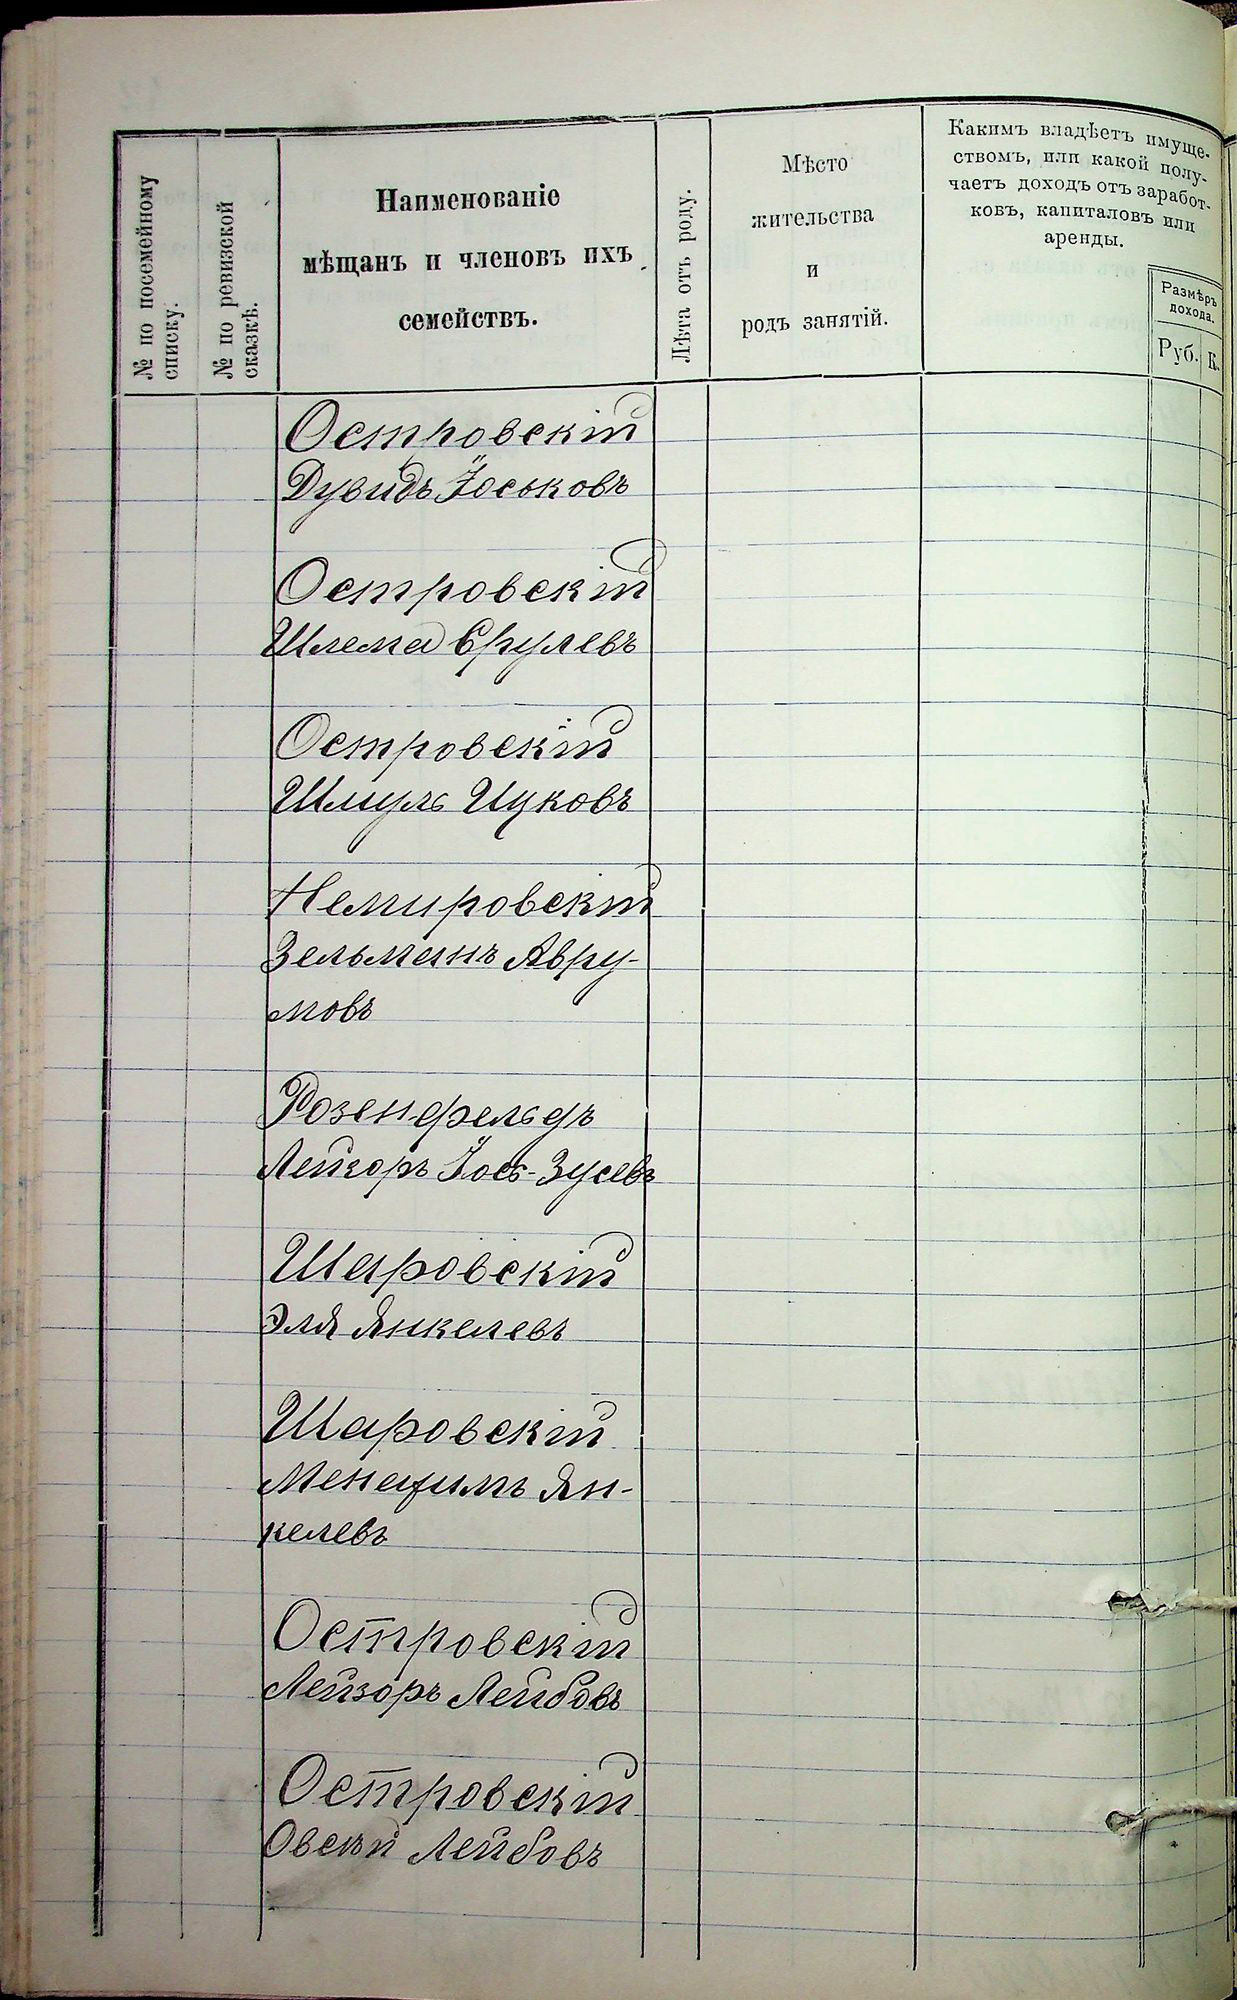 № по посемейному
списку.
№ по ревизской
сказкѣ.
Наименованіе
мѣщанъ и членовъ ихъ
семействъ.
Лѣта отъ роду.
Мѣсто
жительства
и
родъ занятій.
Какимъ владѣетъ имуще-
ствомъ, или какой полу-
чаетъ доходъ отъ заработ-
ковъ, капиталовъ или
аренды.
Размѣръ
дохода.
Руб.
К.
Островскій
Дувидъ Іоськовъ
Островскій
Шлема Срулевъ
Островскій
Шмуль Ицковъ
Немировскій
Зельманъ Авру-
мовъ
Розенфельдъ
Лейзоръ Іось-Зусевъ
Шаровскій
Эля Янкелевъ
Шаровскій
Менахимъ Ян-
келевъ
Островскій
Лейзоръ Лейбовъ
Островскій
Овсѣй Лейбовъ